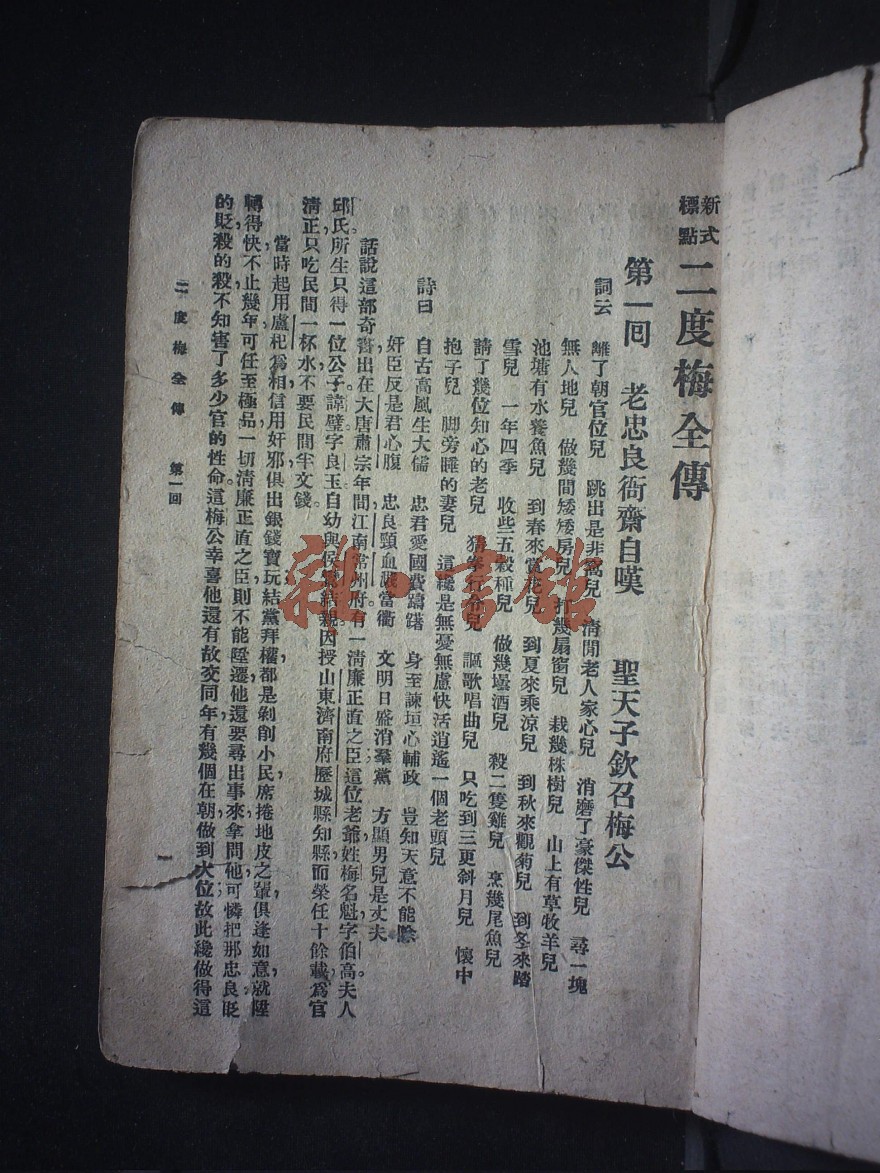 新式標點 二度梅全傳
第一回 老忠良衙齋自嘆 聖天子欽召梅公
詞云 離了朝官位兒 跳出是非窩兒 清閒老人家心兒 消磨了豪傑性兒 尋一塊
無人地兒 做幾間矮矮房兒 打幾扇窗兒 栽幾株樹兒 山上有草牧羊兒
池塘有水養魚兒 到春來賞花兒 到夏來乘涼兒 到秋來觀菊兒 到冬來踏
雪兒 一年四季 收些五穀種兒 做幾壜酒兒 殺二隻雞兒 烹幾尾魚兒
請了幾位知心的老兒 猜拳行令兒 謳歌唱曲兒 只吃到三更斜月兒 懷中
抱子兒 脚旁睡的妻兒 這纔是無憂無慮快活逍遙一個老頭兒
詩曰 自古高風生大儒 忠君愛國費躊躇 身至諫垣心輔政 豈知天意不能除
奸臣反是君心腹 忠良頸血濺當衢 文明日盛消羣黨 方顯男兒是丈夫
話說這部奇書，出在大唐肅宗年間，江南常州府有一清廉正直之臣，這位老爺，姓梅名魁字伯高。夫人
邱氏，所生只得一位公子，諱璧字良玉，自幼與侯鸞結親。因授山東濟南府歷城縣知縣，而榮任十餘載，爲官
淸正，只吃民間一杯水，不要民間半文錢。
當時起用盧杞爲相，信用奸邪，俱出銀錢寶玩，結黨拜權，都是剝削小民，席捲地皮之輩，俱逢如意，就陞
轉得快，不止幾年，可任至極品。一切淸廉正直之臣，則不能陞遷，他還要尋出事來拿問他，可憐把那忠良貶
的貶，殺的殺，不知害了多少官的性命。這梅公幸喜他還有故交同年，有幾個在朝，做到大位，故此纔做得這
二度梅全傳 第一回
一
雜·書館